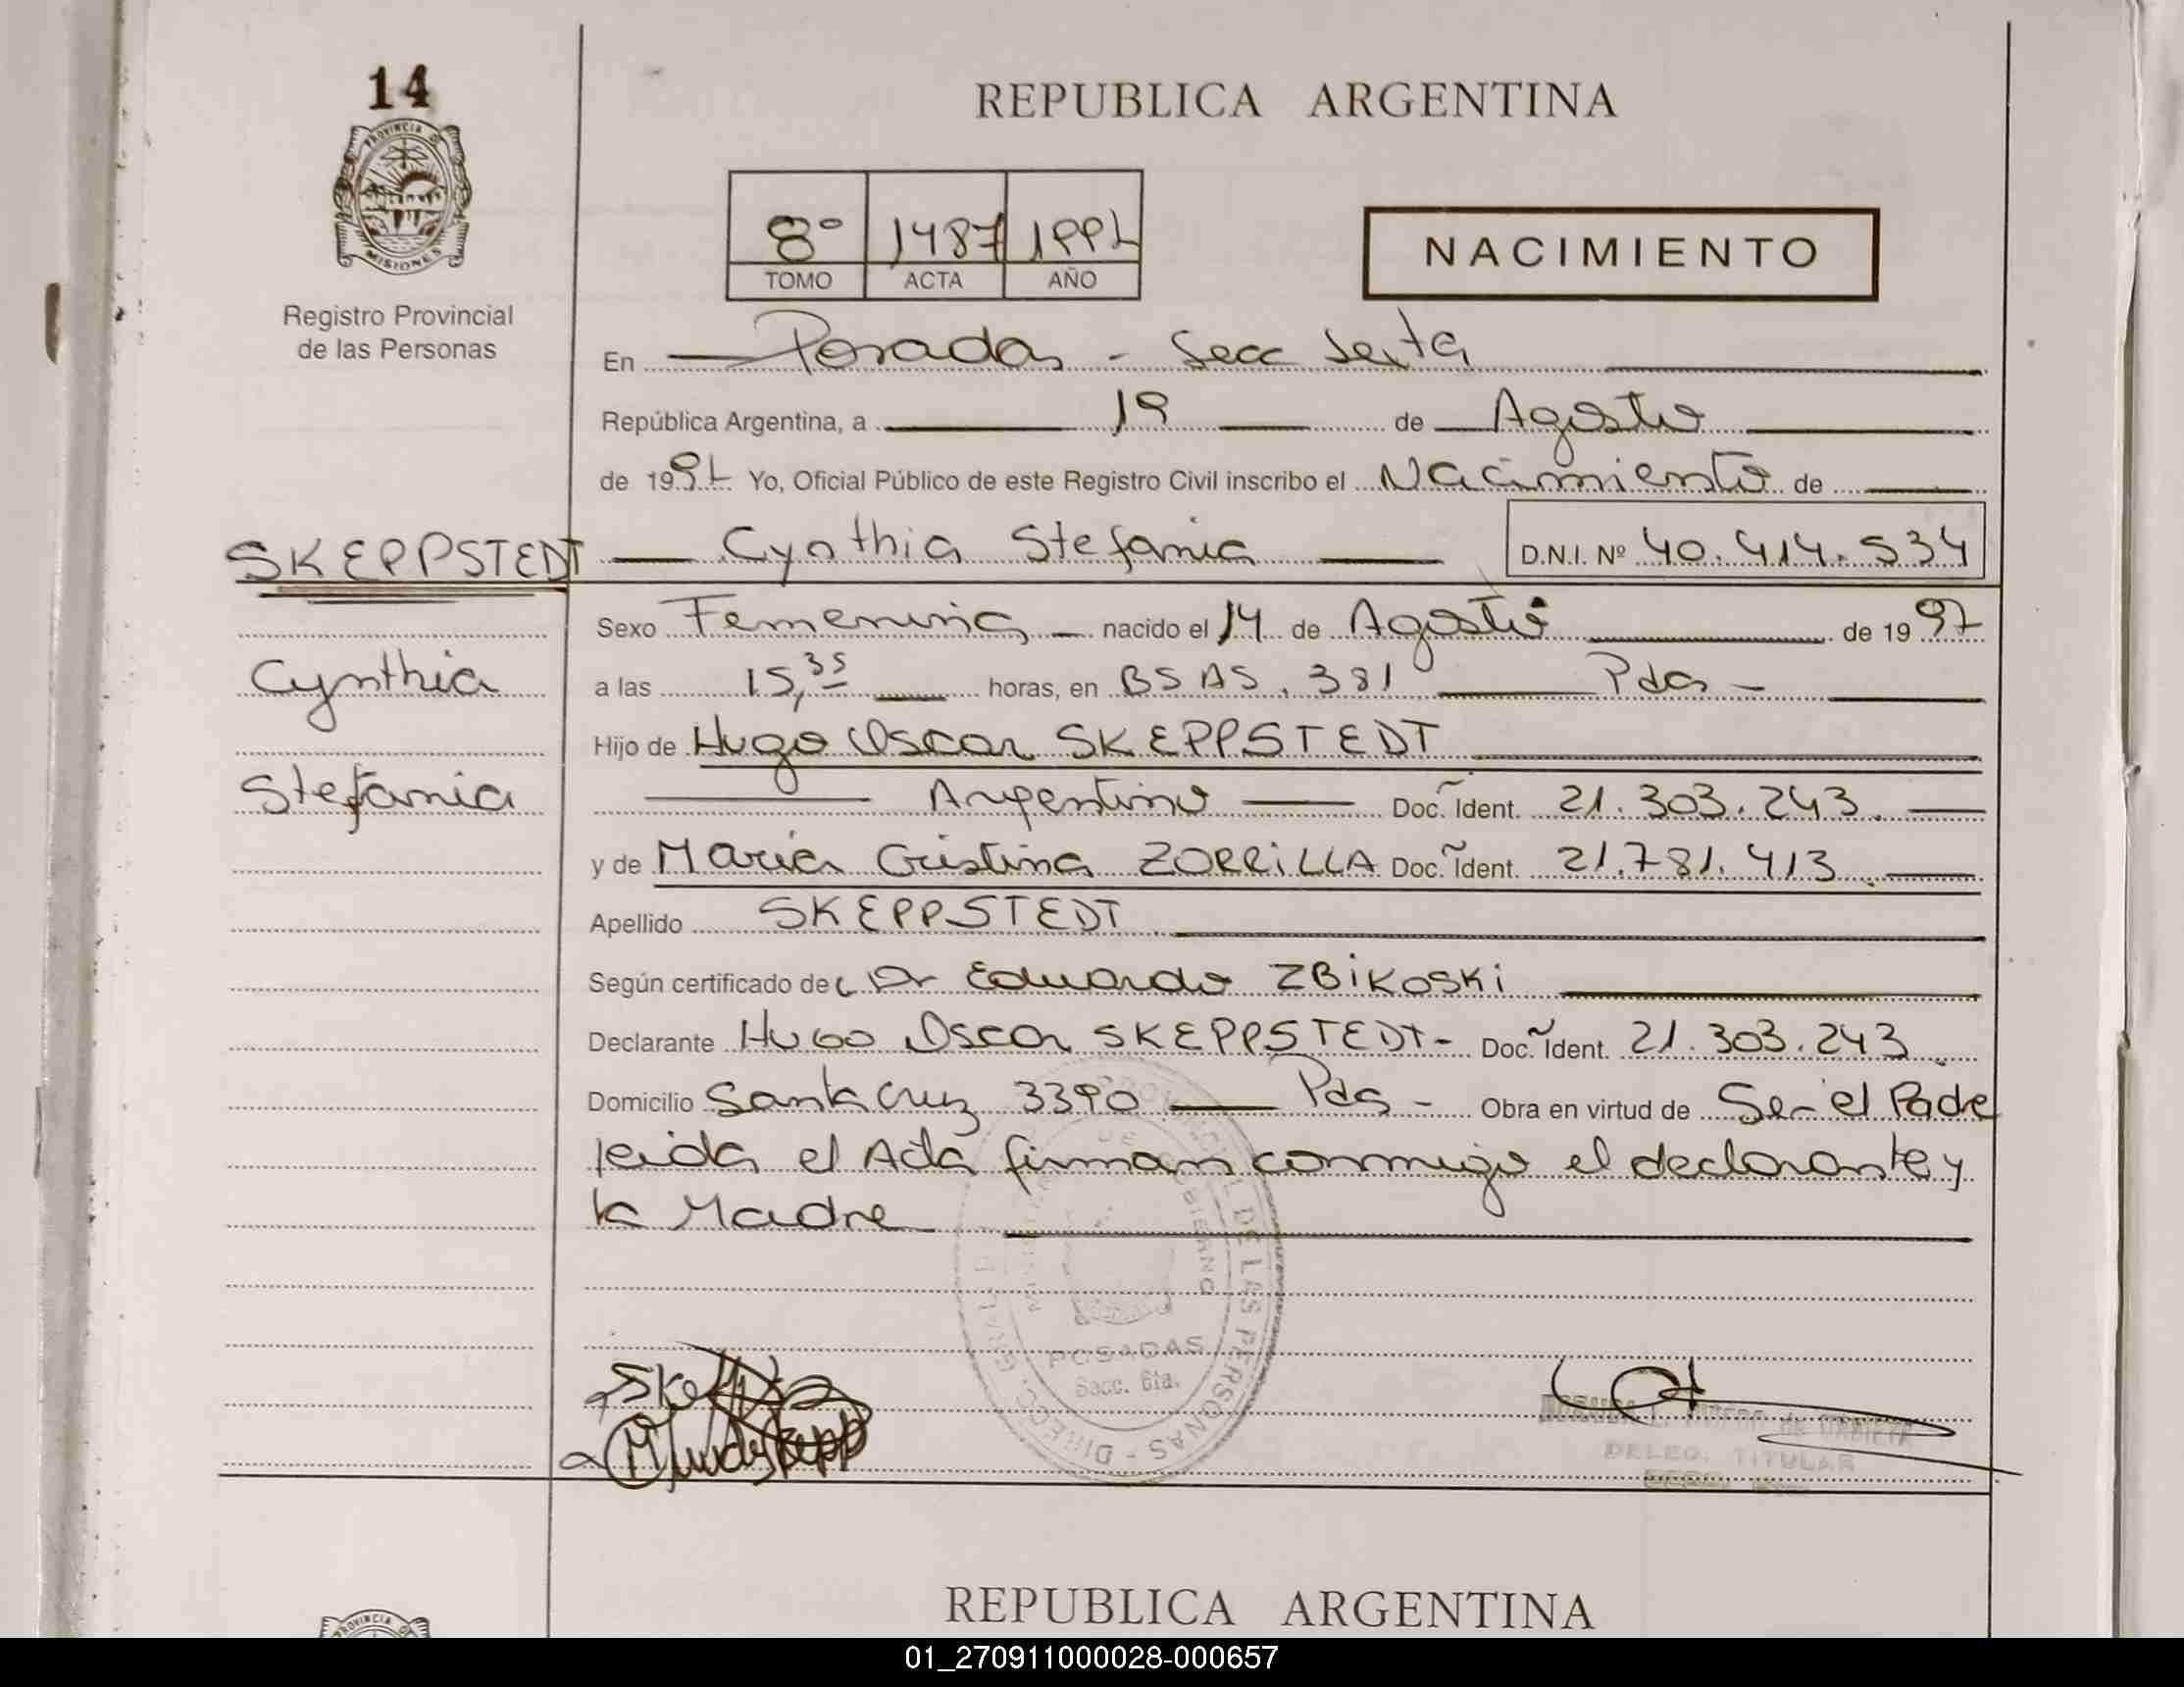 14
REPUBLICA ARGENTINA
PROVINCIA D
MISIONES
Registro Provincial
de las Personas
8º 1487 1997
TOMO ACTA AÑO
NACIMIENTO
En Posadas - Secc Sexta
República Argentina, a 19 de Agosto
de 1997 Yo, Oficial Público de este Registro Civil inscribo el Nacimiento de
SKEPPSTEDT Cynthia Stefania D.N.I. Nº 40.414.534
Sexo Femenina nacido el 14 de Agosto de 1997
Cynthia a las 15,35 horas, en BSAS. 381 Pdas -
Hijo de Hugo Oscar SKEPPSTEDT
Stefania Argentino Doc. Ident. 21.303.243.
y de Maria Cristina ZORRiLLA Doc. Ident. 21.781.413.
Apellido SKEPPSTEDT
Según certificado de Dr Eduardo ZBiKOSKi
Declarante HUGO Oscar SKEPPSTEDT - Doc. Ident. 21.303.243.
Domicilio Santa Cruz 3390 Pds - Obra en virtud de Ser el Padre
leida el Acta firman conmigo el declarante y
la Madre
POSADAS
Secc. 6ta.
DE LAS PERSONAS - DIRECC. GRAL.
DELEG. TITULAR
REPUBLICA ARGENTINA
PROVINCIA
01_270911000028-000657